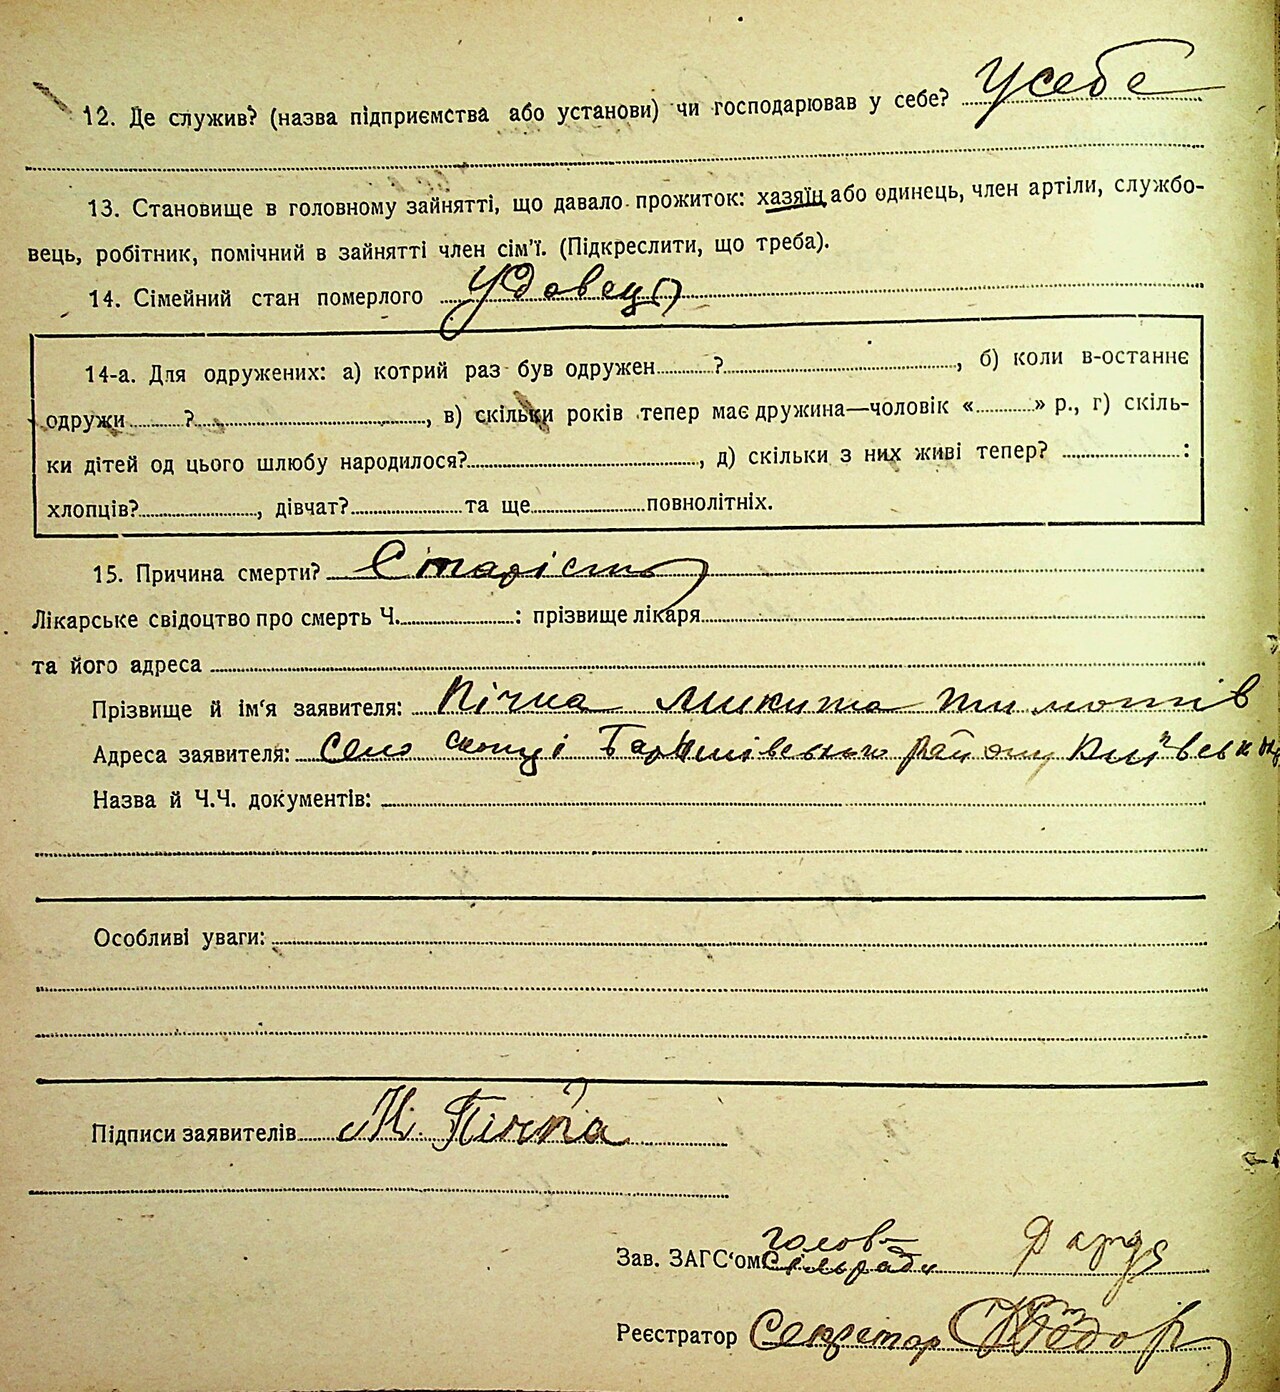 12. Де служив? (назва підприємства або установи) чи господарював у себе? У себе
13. Становище в головному зайнятті, що давало прожиток: хазяїн або одинець, член артіли, службо-
вець, робітник, помічний в зайнятті член сім'ї. (Підкреслити, що треба).
14. Сімейний стан померлого Удовець
14-а. Для одружених: а) котрий раз був одружен ? , б) коли в-останнє
одружи ? , в) скільки років тепер має дружина—чоловік « » р., г) скіль-
ки дітей од цього шлюбу народилося? , д) скільки з них живі тепер? :
хлопців? , дівчат? та ще повнолітніх.
15. Причина смерти? Старість
Лікарське свідоцтво про смерть Ч. : прізвище лікаря
та його адреса
Прізвище й ім'я заявителя: Пічка Микита Тимотів
Адреса заявителя: село Скопці Баришівського району Київськ
Назва й Ч.Ч. документів:
Особливі уваги:
Підписи заявителів М. Пічка
Зав. ЗАГС'ом голова
Сільради
Реєстратор Секретар